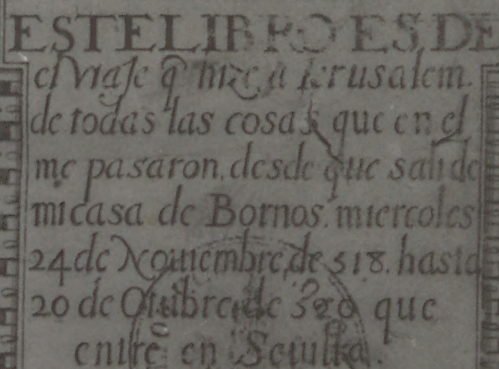 ESTE LIBRO ES DE
el viaje q̃ hize a Ierusalem.
de todas las cosas que en el
me pasaron. desde que sali de
mi casa de Bornos. miercoles
24 de Nouiembre de 518. hasta
20 de Otubre de 520 que
entre en Seuilla.